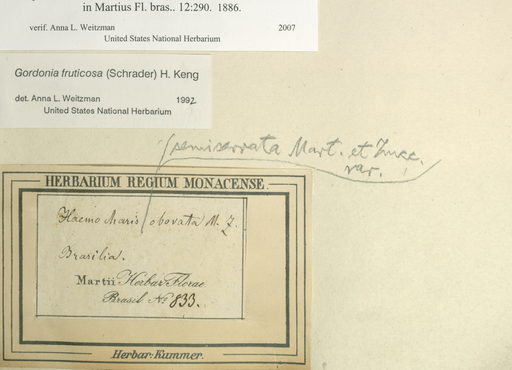 in Martius Fl. bras.. 12:290. 1886.
verif. Anna L. Weitzman 2007
United States National Herbarium
Gordonia fruticosa (Schrader) H. Keng
det. Anna L. Weitzman 1992
United States National Herbarium
(semiserrata Mart. et Zucc.
var.
HERBARIUM REGIUM MONACENSE.
Haemocharis obovata M. Z.
Brasilia.
Martii Herbar. Florae
Brasil. No 833.
Herbar. Kummer.